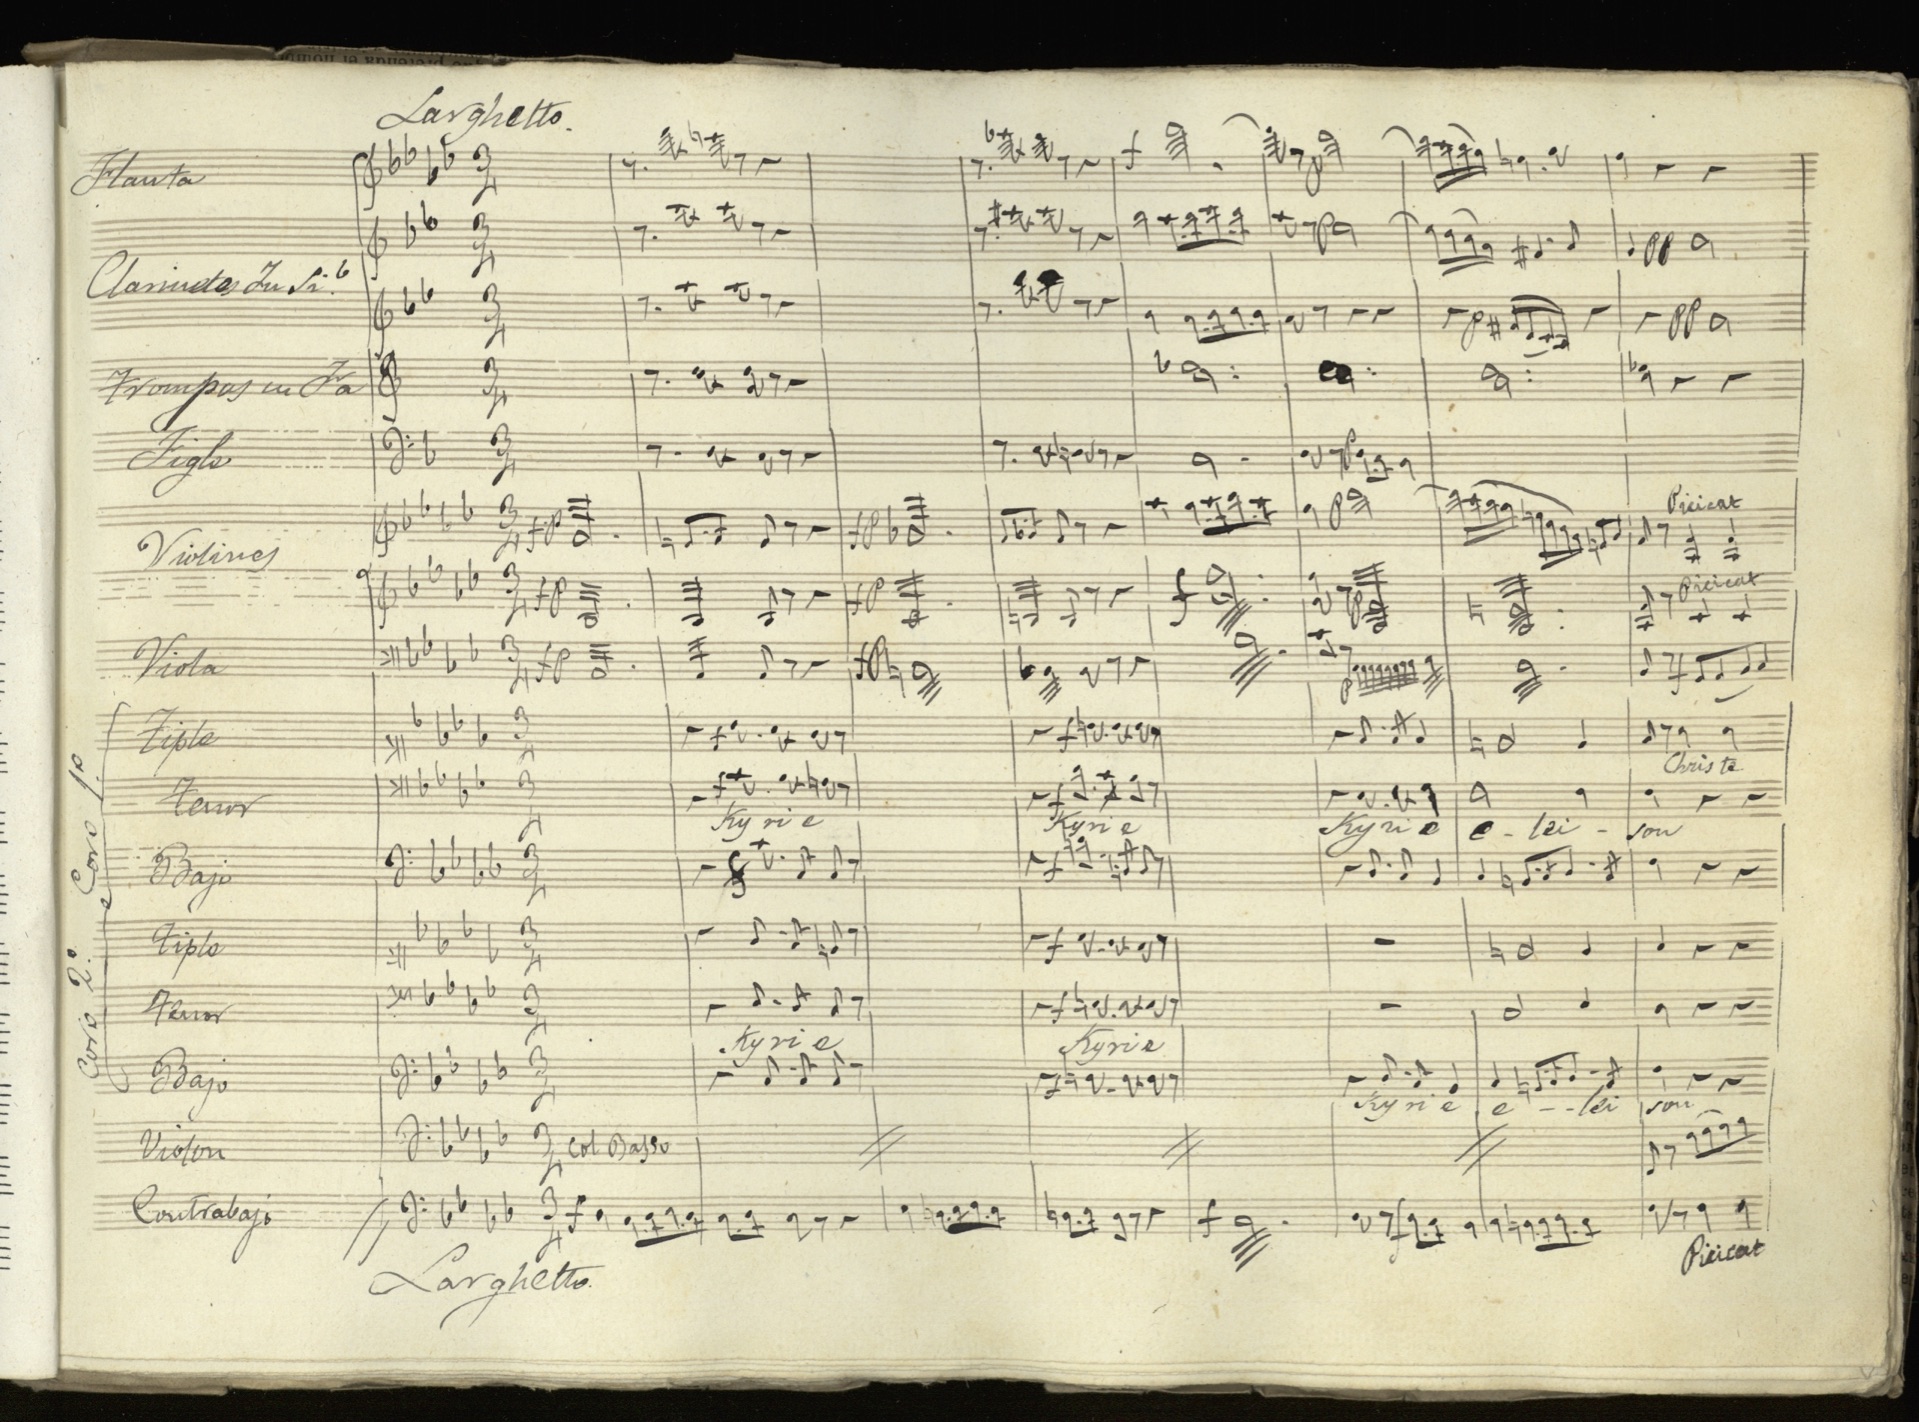 Larghetto.
Flauta
Clarinetes In Si b
Trompas in Fa
Figle
Pizicat
Violines
Pizicat
Viola
Coro 1º
Tiple
Christe
Tenor
Kyrie Kyrie Kyrie e - lei - son
Bajo
Coro 2º
Tiple
Tenor
Kyrie Kyrie
Bajo
Kyrie e - - lei son
Violon Col Basso
Contrabajo
Pizicat
Larghetto.